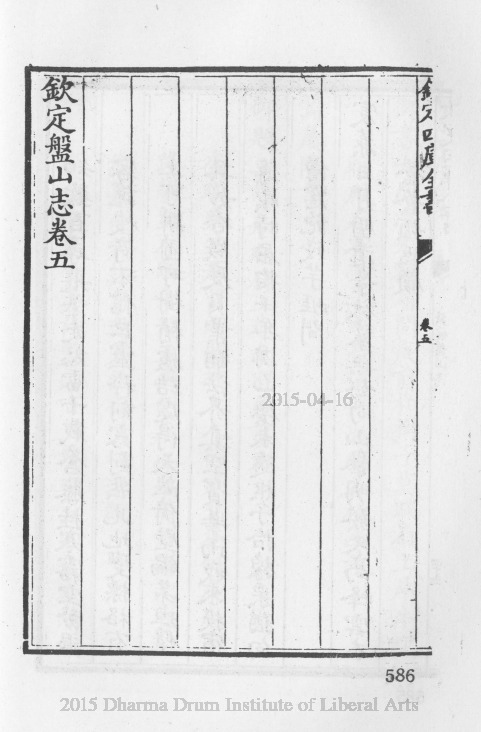 欽定四庫全書
卷五
欽定盤山志卷五
2015-04-16
586
2015 Dharma Drum Institute of Liberal Arts